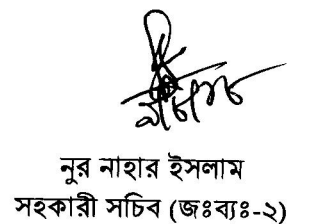 নুর নাহার ইসলাম
সহকারী সচিব (জঃব্যঃ-২)